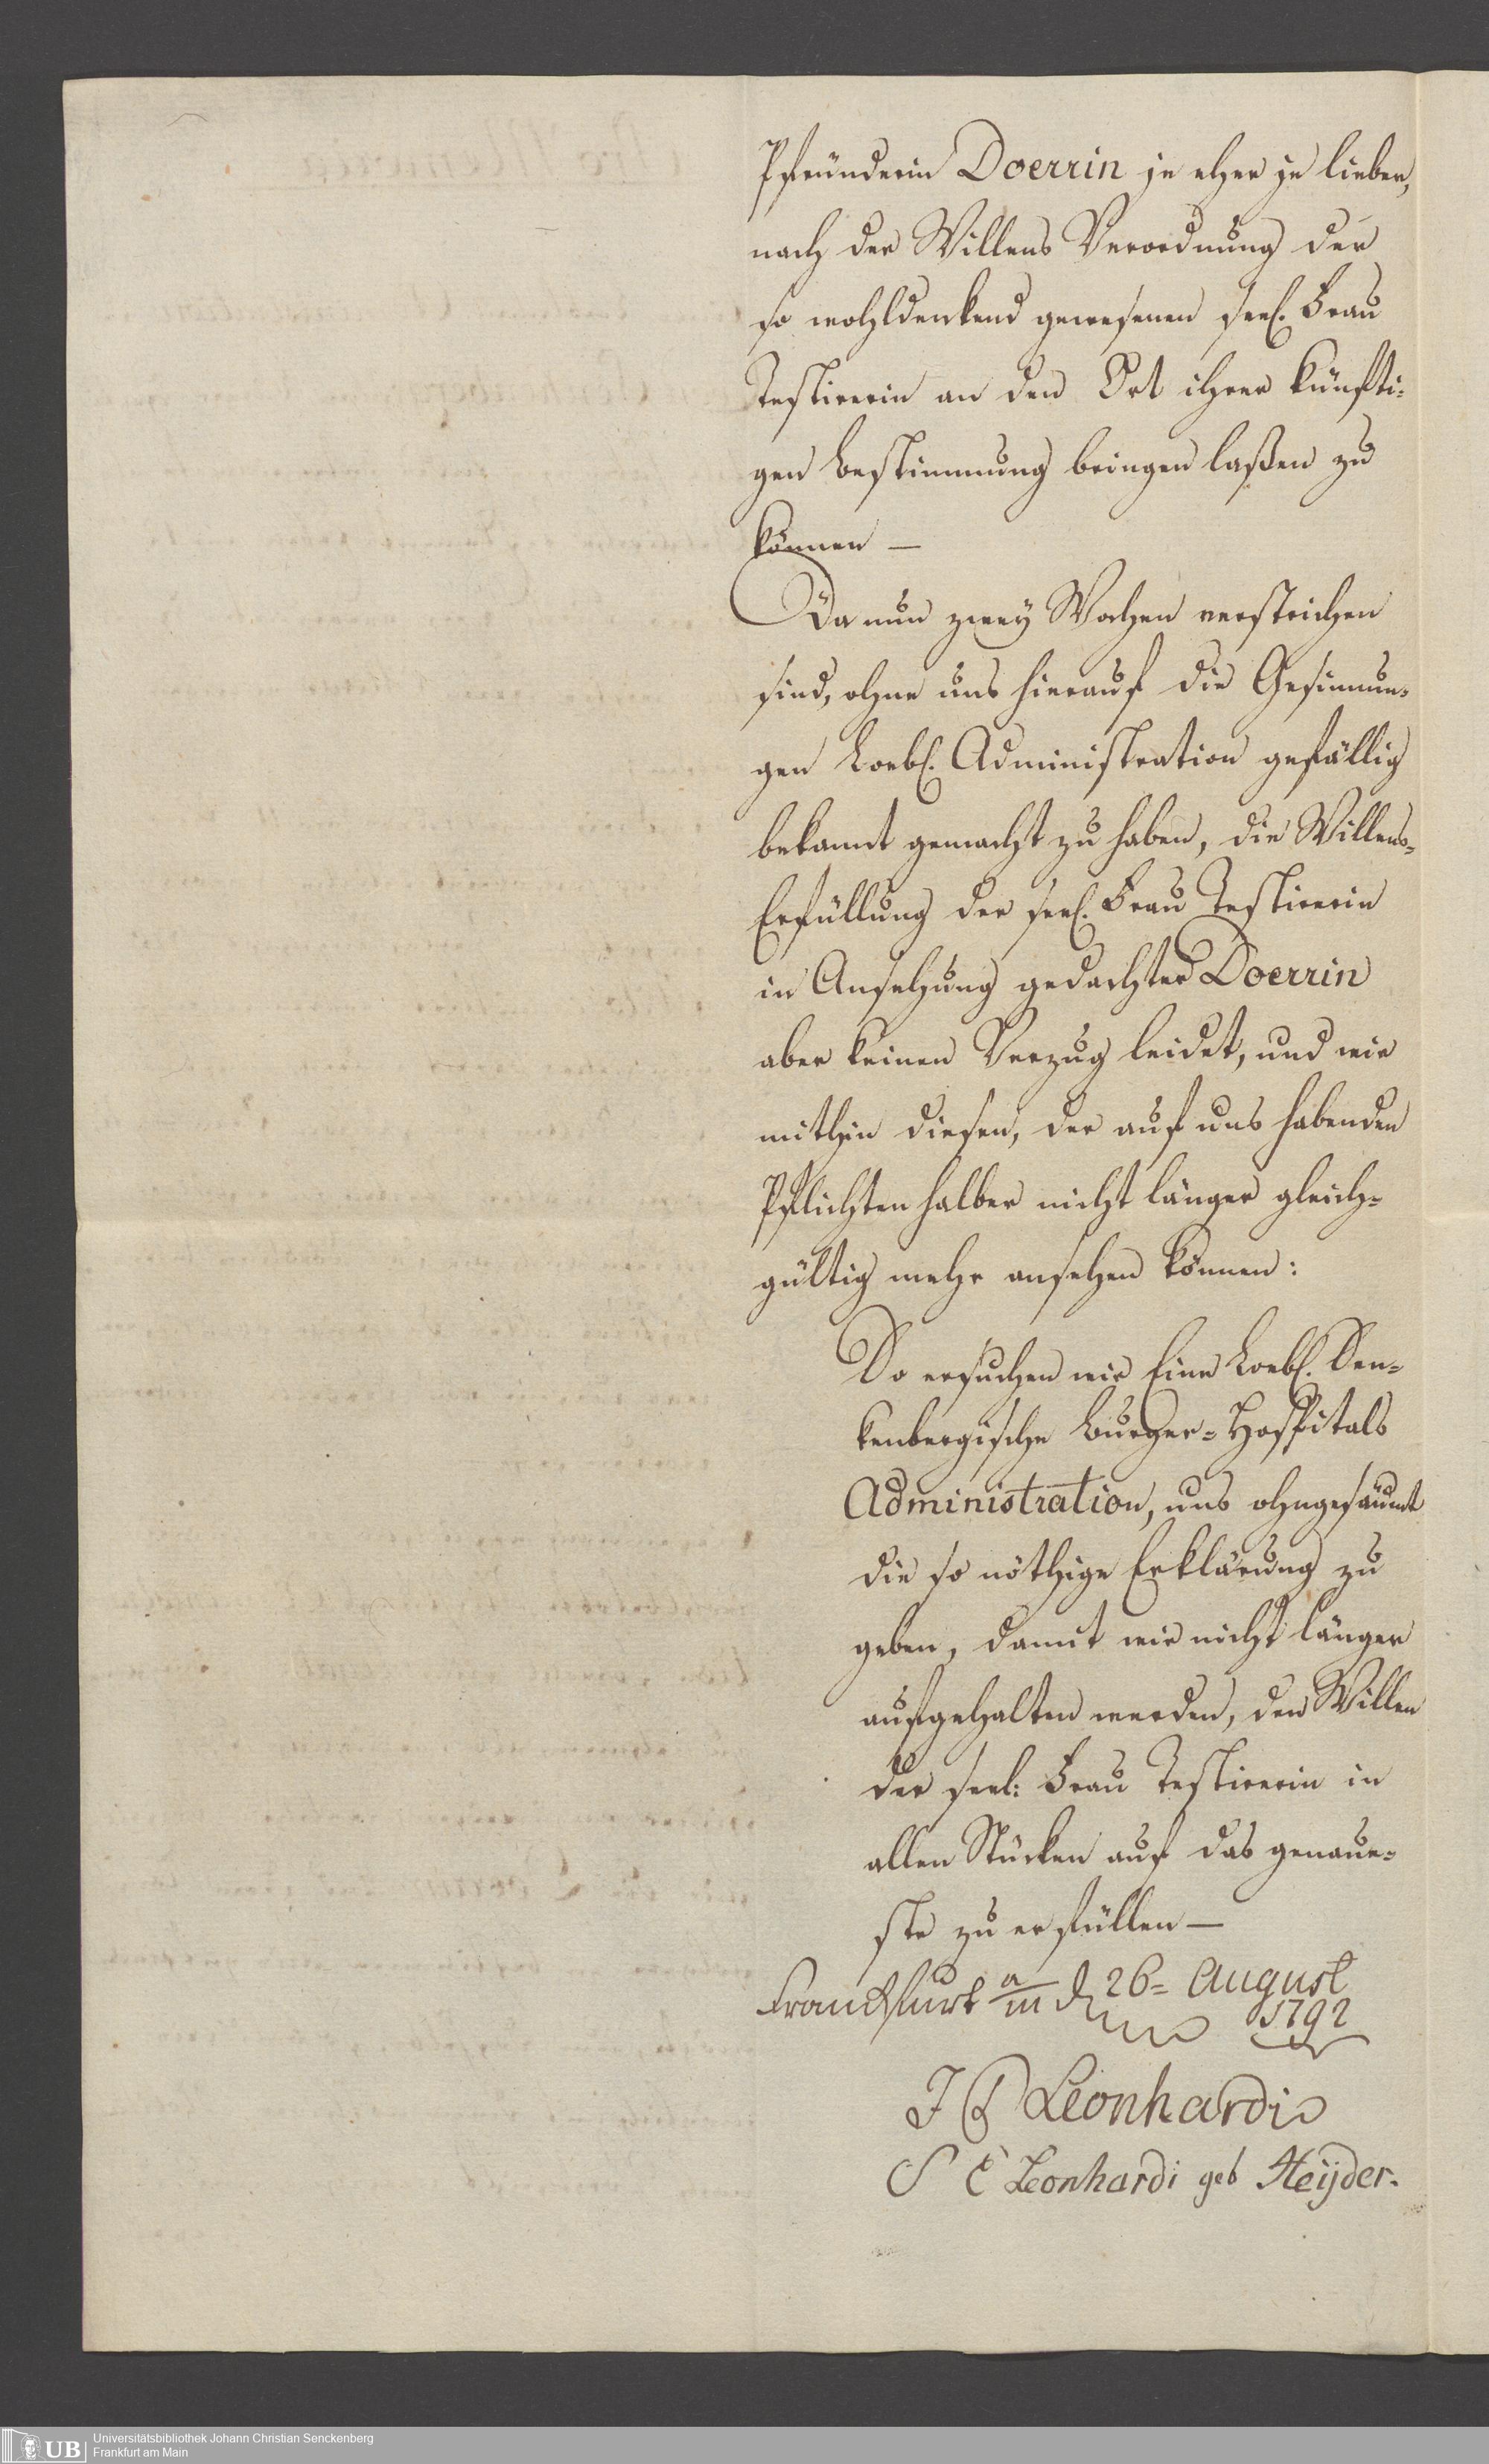 Pfründerin Doerrin je eher je lieber,
nach der Willens Verordnung der
so wohldenkend gewesenen seel. Frau
Testirerin an den Ort ihrer künfti-
gen Bestimmung bringen laßen zu
können —
Da nun zwey Wochen verstrichen
sind, ohne uns hierauf die Gesinnun-
gen Loebl. Administration gefällig
bekannt gemacht zu haben, die Willens-
Erfüllung der seel. Frau Testirerin
in Ansehung gedachter Doerrin
aber keinen Verzug leidet, und wir
mithin diesen, der auf uns habenden
Pflichten halber nicht länger gleich-
gültig mehr ansehen können:
So ersuchen wir Eine Loebl. Sen-
kenbergische Burger-Hospitals
Administration, uns ohngesäumt
die so nöthige Erklärung zu
geben, damit wir nicht länger
aufgehalten werden, den Willen
der seel: Frau Testirerin in
allen Stücken auf das genaue-
ste zu erfüllen —
Franckfurt a/m d 26= August
1792
J P Leonhardi
S C Leonhardi geb Heyder.
UB Universitätsbibliothek Johann Christian Senckenberg
Frankfurt am Main